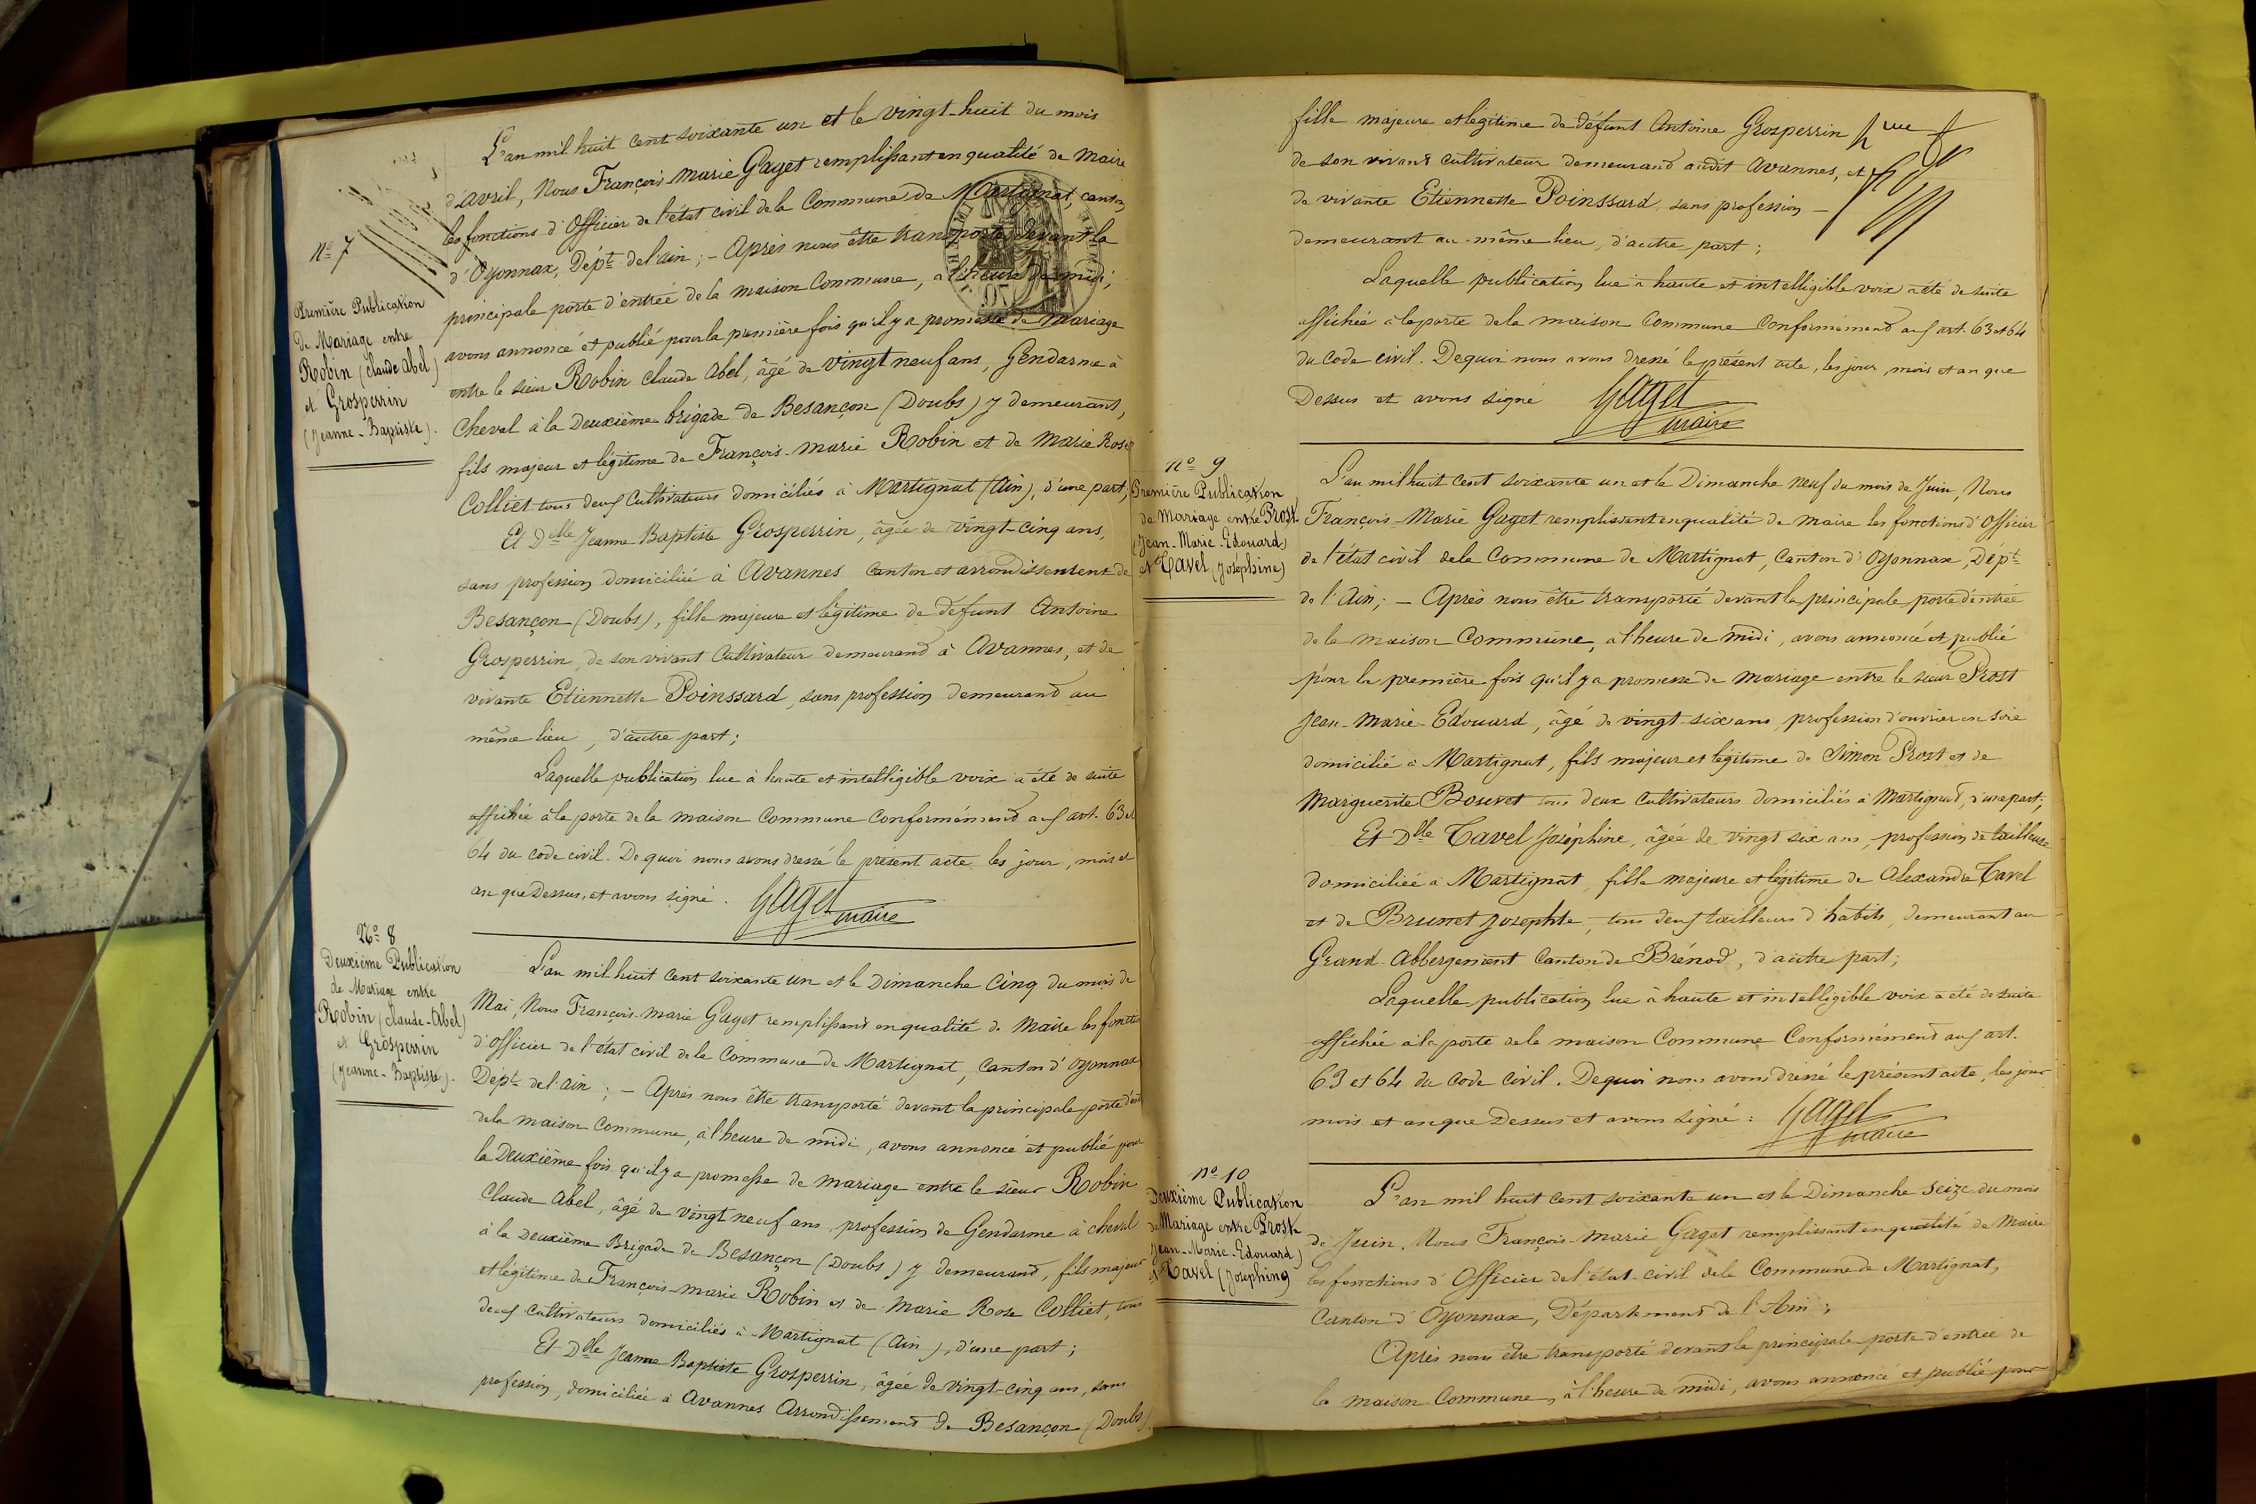 L'an mil huit cent soixante un et le vingt-huit du mois
d'avril, Nous François Marie Gaget remplissant en qualité de Maire
les fonctions d'Officier de l'état civil de la Commune de Martignat, canton
d'Oyonnax, Dépt de l'ain ; – Après nous être transporté devant la
principale porte d'entrée de la maison Commune, a l'heure de midi ;
avons annoncé et publié pour la première fois qu'il y a promesse de mariage
entre le sieur Robin Claude Abel, âgé de vingt neuf ans, Gendarme à
Cheval à la Deuxième brigade de Besançon (Doubs) y demeurant,
fils majeur et légitime de François-Marie Robin et de Marie Rose
Colliet tous deux Cultivateurs domiciliés à Martignat (Ain), d'une part,
Et Dlle Jeanne Baptiste Grosperrin, âgée de vingt-cinq ans,
sans profession domiciliée à Avannes canton et arrondissement de
Besançon (Doubs), fille majeure et légitime de défunt Antoine
Grosperrin, de son vivant Cultivateur demeurant à Avannes, et de
vivante Etiennette Poinssard, sans profession demeurant au
même lieu, d'autre part ;
Laquelle publication lue à haute et intelligible voix a été de suite
affichée à la porte de la maison Commune Conformément aux art. 63 et
64 du code civil. De quoi nous avons dressé le présent acte les jour, mois et
an que Dessus, et avons signé. Gaget
maire
N° 7
Première Publication
de Mariage entre
Robin (Claude Abel)
et Grosperrin
(Jeanne-Baptiste).
N° 8
Deuxième Publication
de Mariage entre
Robin (Claude-Abel)
et Grosperrin
(Jeanne-Baptiste).
L'an mil huit cent soixante un et le Dimanche cinq du mois de
Mai, Nous François-Marie Gaget remplissant en qualité de Maire les foncti
d'Officier de l'état civil de la Commune de Martignat, Canton d'Oyonnax
Dépt de l'ain ; – Après nous être transporté devant la principale porte d'ent
de la maison Commune, à l'heure de midi, avons annoncé et publié pour
la Deuxième fois qu'il y a promesse de mariage entre le sieur Robin
Claude Abel, âgé de vingt neuf ans, profession de Gendarme à cheval
à la Deuxième Brigade de Besançon (Doubs) y demeurant, fils majeur
et légitime de François-Marie Robin et de Marie Rose Colliet, tous
deux cultivateurs domiciliés à Martignat (Ain), d'une part ;
Et Dlle Jeanne Baptiste Grosperrin, âgée de vingt-cinq ans, sans
profession, domiciliée à Avannes Arrondissement de Besançon (Doubs)
fille majeure et légitime de défunt Antoine Grosperrin
de son vivant Cultivateur demeurant audit Avannes, et
de vivante Etiennette Poinssard sans profession –
demeurant au même lieu, d'autre part ;
Laquelle publication lue à haute et intelligible voix a été de suite
affichée à la porte de la maison Commune Conformément aux art. 63 et 64
du Code civil. De quoi nous avons dressé le présent acte, les jour, mois et an que
Dessus et avons signé Gaget
maire
N° 9
Première Publication
de Mariage entre Prost
(Jean-Marie-Edouard)
et Tavel (Joséphine)
L'an mil huit cent soixante un et le Dimanche neuf du mois de Juin, Nous
François-Marie Gaget remplissant en qualité de maire les fonctions d'Officier
de l'état civil de la Commune de Martignat, Canton d'Oyonnax, Dépt
de l'Ain ; – Après nous être transporté devant la principale porte d'entrée
de la maison Commune, a l'heure de midi, avons annoncé et publié
pour la première fois qu'il y a promesse de mariage entre le sieur Prost
Jean-Marie-Edouard, âgé de vingt-six ans, profession d'ouvrier en soie
domicilié à Martignat, fils majeur et légitime de Simon Prost et de
Marguerite Bouvet tous deux Cultivateurs domiciliés à Martignat, d'une part.
Et Dlle Tavel Joséphine, âgée de vingt six ans, profession de tailleuse
domiciliée à Martignat, fille majeure et légitime de Alexandre Tavel
et de Brunet Josephte, tous deux tailleurs d'habits, demeurant au
Grand Abbergement Canton de Brénod, d'autre part ;
Laquelle publication lue à haute et intelligible voix a été de suite
affichée à la porte de la maison Commune Conformément aux art.
63 et 64 du Code Civil. De quoi nous avons dressé le présent acte, les jour
mois et an que Dessus et avons signé : Gaget
maire
N° 10
Deuxième Publication
de Mariage entre Prost
Jean-Marie-Edouard)
et Tavel (Joséphine)
L'an mil huit cent soixante un et le Dimanche seize du mois
de Juin, Nous François-Marie Gaget remplissant en qualité de Maire
les fonctions d'Officier de l'état-civil de la Commune de Martignat,
Canton d'Oyonnax, Département de l'Ain ;
Après nous être transporté devant la principale porte d'entrée de
la maison Commune, à l'heure de midi, avons annoncé et publié pour